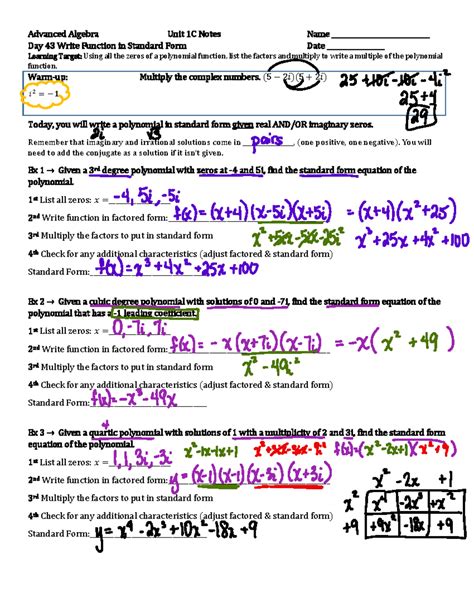 Advanced Algebra Unit 1C Notes Name
Day 43 Write Function in Standard Form Date
Learning Target: Using all the zeros of a polynomial function, list the factors and multiply to write a multiple of the polynomial
function.
Warm-up: Multiply the complex numbers. (5 − 2i)(5 + 2i) 25 +10i -10i -4i²
i² = −1 25+4
29
Today, you will write a polynomial in standard form given real AND/OR imaginary zeros.
2i √3
Remember that imaginary and irrational solutions come in pairs, (one positive, one negative). You will
need to add the conjugate as a solution if it isn't given.
Ex 1 → Given a 3rd degree polynomial with zeros at -4 and 5i, find the standard form equation of the
polynomial.
1st List all zeros: x = -4, 5i, -5i
2nd Write function in factored form: f(x) = (x+4)(x-5i)(x+5i) = (x+4)(x²+25)
3rd Multiply the factors to put in standard form x²+5ix-5ix-25i² x³+25x+4x²+100
4th Check for any additional characteristics (adjust factored & standard form)
Standard Form: f(x) = x³+4x²+25x+100
Ex 2 → Given a cubic degree polynomial with solutions of 0 and -7i, find the standard form equation of the
polynomial that has a -1 leading coefficient.
1st List all zeros: x = 0, -7i, 7i
2nd Write function in factored form: f(x) = -x(x+7i)(x-7i) = -x(x²+49)
3rd Multiply the factors to put in standard form x²-49i²
4th Check for any additional characteristics (adjust factored & standard form)
Standard Form: f(x) = -x³-49x
4
Ex 3 → Given a quartic polynomial with solutions of 1 with a multiplicity of 2 and 3i, find the standard form
equation of the polynomial. x²-1x-1x+1 f(x)=(x²-2x+1)(x²+9)
1st List all zeros: x = 1, 1, 3i, -3i
2nd Write function in factored form: y = (x-1)(x-1)(x-3i)(x+3i)
3rd Multiply the factors to put in standard form
x² -2x +1
x² x⁴ -2x³ +x²
+9 +9x² -18x +9
4th Check for any additional characteristics (adjust factored & standard form)
Standard Form: y = x⁴-2x³+10x²-18x+9